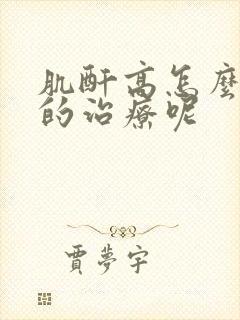 肌酐高怎麼
的治療呢
賈夢宇